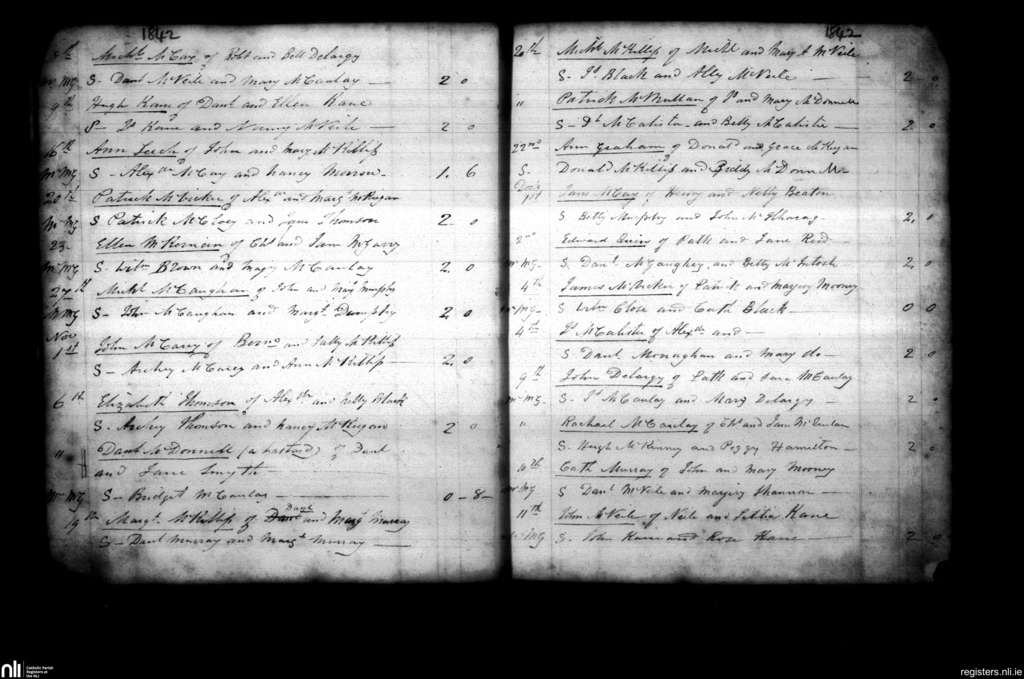 1842
Michl. McCay of Robt and Bell Delargy
Mr McG S- Danl McVeile and Mary McCaulay 2 0
9th Hugh Kane of Danl and Ellen Kane
S- Js Kane and Nancy McVeile 2 0
16th Ann Leech of John and Mary McKillip
Mr McG S- Alexr McCay and Nancy Morrow 1. 6
20th Patrick McVicker of Alexr and Margt McKigan
Mr McG S Patrick McCloey and Jane Thomson 2 0
23 Ellen McKernan of Edd and Jane McGarry
Mr McG S. Willm Brown and Mary McCaulay 2. 0
27th Michl McCaughan of John and Margt Murphy
Mr McG S- John McCaughan and Margt. Dempsey 2. 0
Nov 1st John McCarey of Bernd and Sally McKillip
S- Archey McCarey and Ann McKillip 2. 0
6th Elizabeth Thomson of Alexdr and Nelly Black
S. Archey Thomson and Nancy McKigan 2 0
" Danl McDonnell (a bastard) of Danl
and Jane Smyth
Mr McG S- Bridget McCaulay 0-8-
19th Margt. McKillip of Danl and Margt Murray
S- Danl Murray and Margt Murray
1842
20th Michl McKillip of Michl and Margt McVeile
S- Js Black and Ally McVeile 2 0
" Patrick McMullan of Js and Mary McDonnell
S- Js McCalister and Betty McCalister 2. 0
22nd Ann Graham of Donald and Grace McKigan
S. Donald McKillip and Biddy McDonnell
Decr 1st Jane McCay of Henry and Nelly Beaton
S Betty Murphy and John McIlhargy 2. 0
2nd Edward Quinn of Patk and Jane Reid
Mr McG. S. Danl. McGaughey, and Betty McIntosh 2. 0
4th James McVicker of Patrick and Margery Mooney
Mr McG S Willm Close and Cath Black 0 0
4th Js McCalister of Alexdr and
S. Danl Monaghan and Mary do 2 0
9th John Delargy of Patk and Sara McCaulay
Mr McG. S. Js McCaulay and Mary Delargy 2
" Rachael McCaulay of Edd and Jane
S. Hugh McKinney and Peggy Hamilton 2 0
10th Cath Murray of John and Mary Mooney
Mr McG S Danl McVeile and Margery Shannon
11th John McVeile of Neile and Kane
Mr McG S. John Kane and Rose Kane 2 0
nli Catholic Parish Registers at the NLI
registers.nli.ie